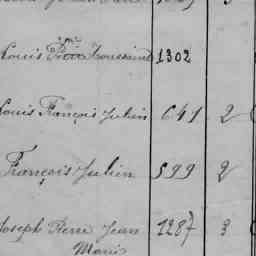 Louis Toussaint 1302
Louis François Julien 641 2
François Julien 599 2
Joseph Pierre Jean 1287 3
Marie